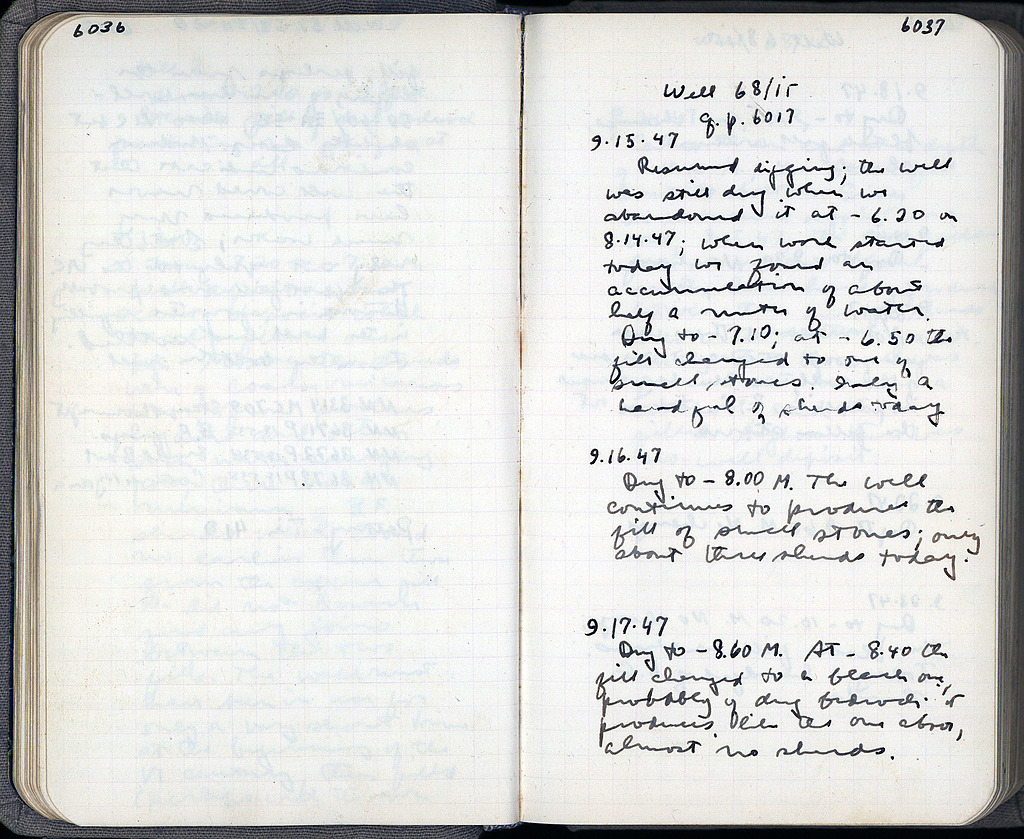 6036
6037
Well 68/15
q.p. 6017
9.15.47
Resumed digging; the well
was still dry when we
abandoned it at -6.20 on
8.14.47; when work started
today we found an
accumulation of about
half a meter of water.
Dug to -7.10; at -6.50 the
fill changed to one of
small stones. Only a
handful of sherds today
9.16.47
Dug to -8.00 M. The well
continues to produce the
fill of small stones; only
about three sherds today.
9.17.47
Dug to -8.60 M. At -8.40 the
fill changed to a black one,
probably of dug bedrock. it
produces, like the one above,
almost no sherds.